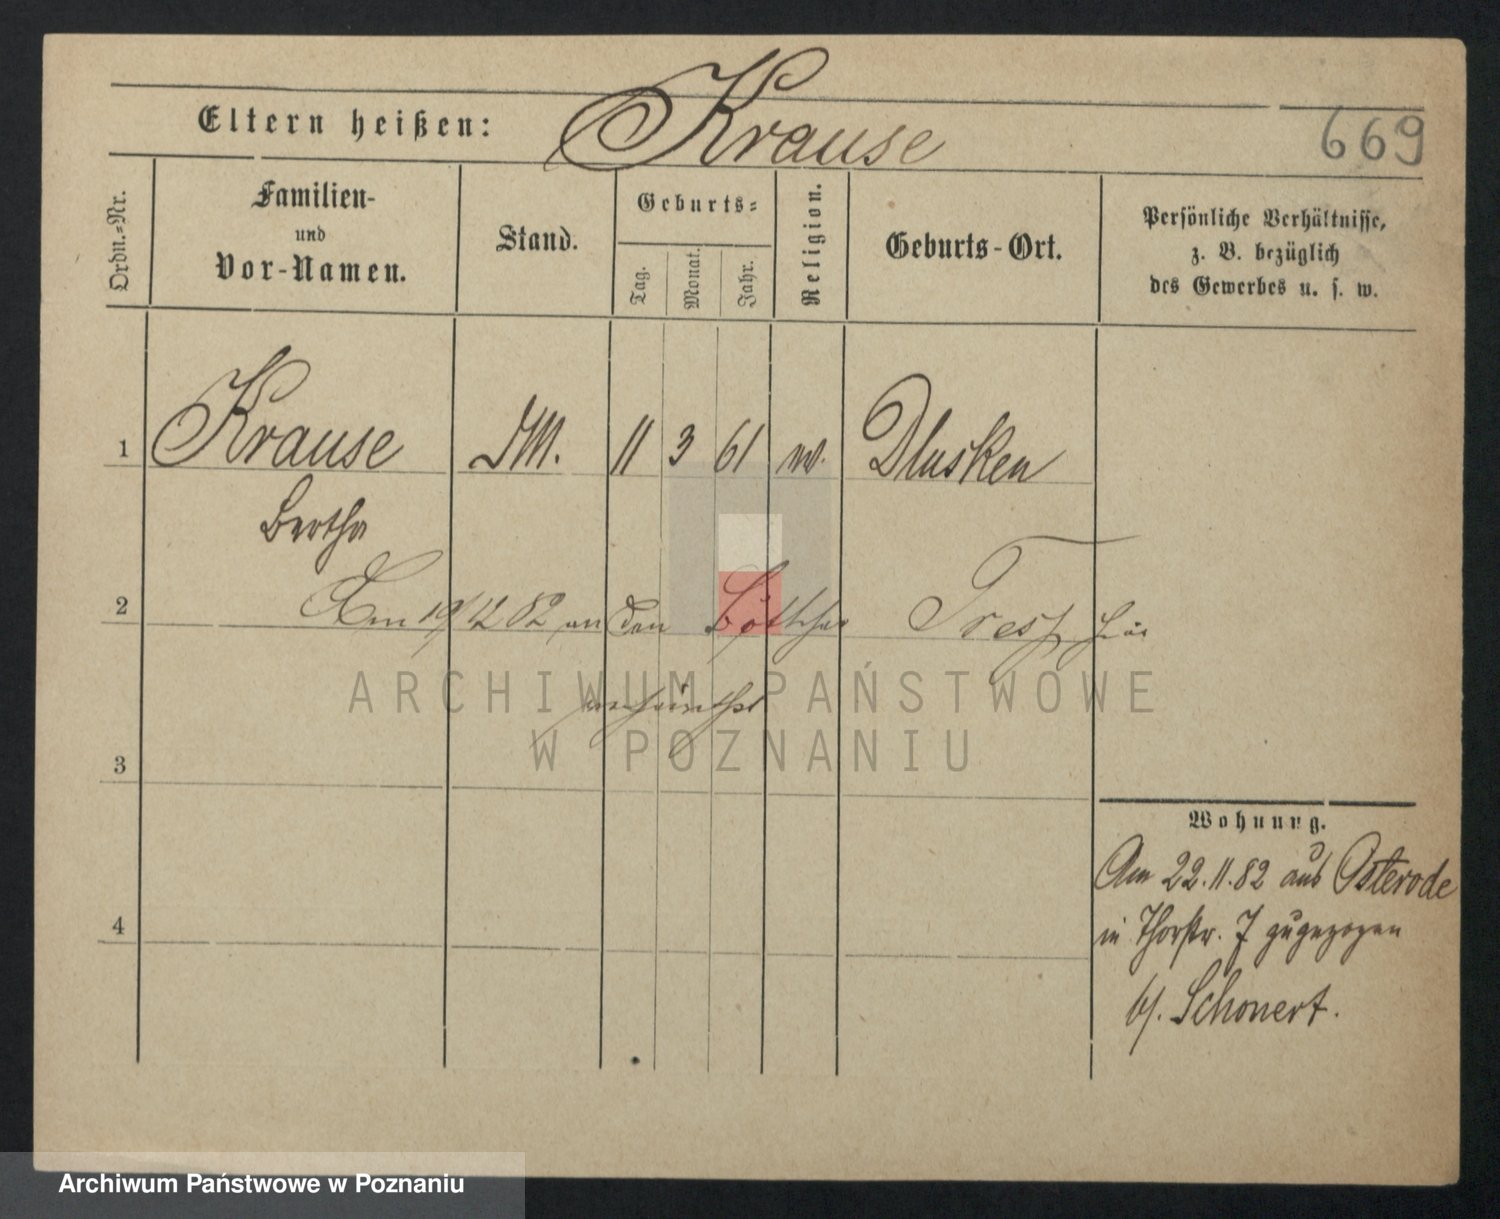 Eltern heißen: Krause 669
Ordn.=Nr.
Familien-
und
Vor-Namen.
Stand.
Geburts=
Tag.
Monat.
Jahr.
Religion.
Geburts-Ort.
Persönliche Verhältnisse,
z. B. bezüglich
des Gewerbes u. s. w.
1 Krause 11 3 61 Dlusken
Bertha
2 Am 19/12 82 an den Böttcher
3
4
Wohnung.
Am 22.11.82 aus Osterode
in Thorstr. 7 zugezogen
b/. Schonert.
ARCHIWUM PAŃSTWOWE
W POZNANIU
Archiwum Państwowe w Poznaniu